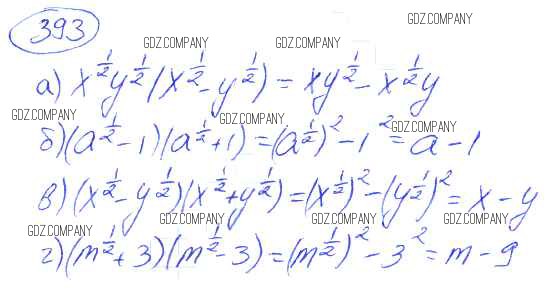 393
GDZ.COMPANY
GDZ.COMPANY GDZ.COMPANY
а) x^{1/2}y^{1/2}(x^{1/2} - y^{1/2}) = xy^{1/2} - x^{1/2}y
GDZ.COMPANY GDZ.COMPANY GDZ.COMPANY
б) (a^{1/2} - 1)(a^{1/2} + 1) = (a^{1/2})^2 - 1^2 = a - 1
в) (x^{1/2} - y^{1/2})(x^{1/2} + y^{1/2}) = (x^{1/2})^2 - (y^{1/2})^2 = x - y
GDZ.COMPANY GDZ.COMPANY GDZ.COMPANY GDZ.COMPANY
г) (m^{1/2} + 3)(m^{1/2} - 3) = (m^{1/2})^2 - 3^2 = m - 9